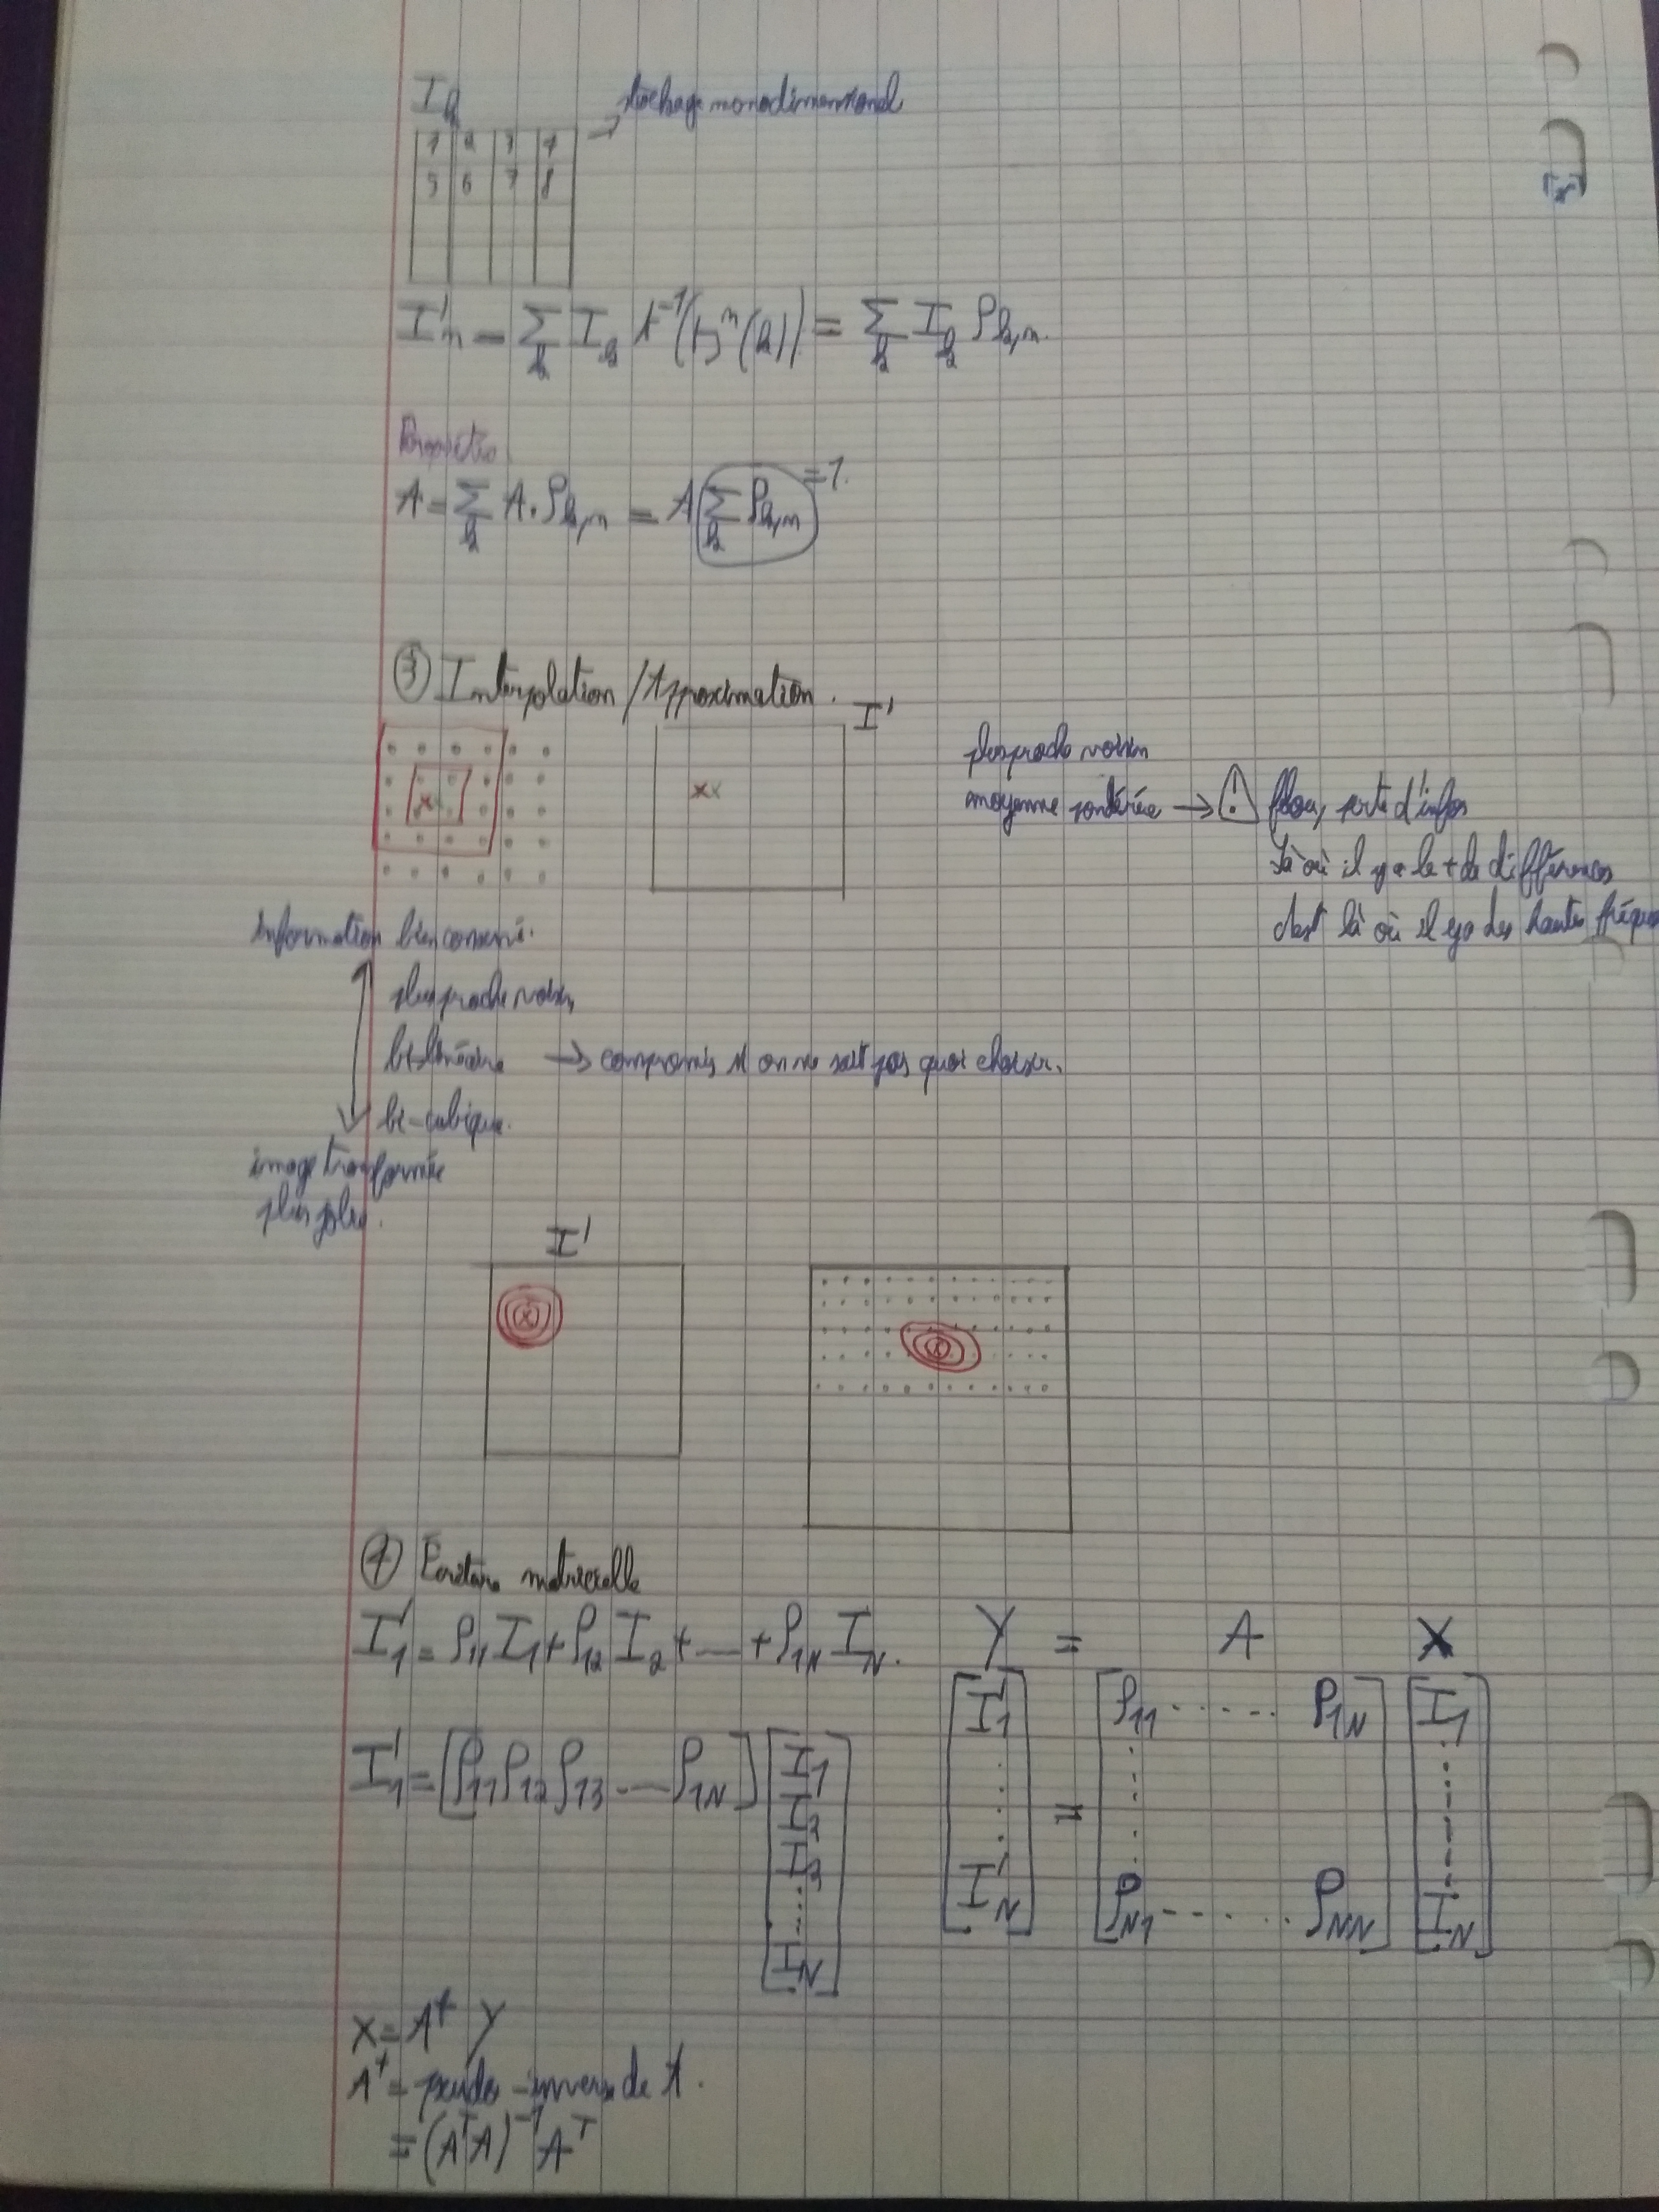 I_k
→ stockage monodimensionnel
1 2 3 4
5 6 7 8
I'_n = Σ_k I_k t^{-1}( ^n(k)) = Σ_k I_k ρ_{k,n}.
Propriétés
A = Σ_k A. ρ_{k,n} = A (Σ_k ρ_{k,n}) = 1.
③ Interpolation / Approximation.
I'
x
xx
plus proche voisin
moyenne pondérée → ⚠ flou, perte d'infos
Là où il y a le + de différences
c'est là où il y a des hautes fréque
Information bien conservé.
plus proche voisin,
bi-linéaire → compromis si on ne sait pas quoi choisir.
bi-cubique.
image transformée
plus jolie.
I'
x
x
④ Écriture matricielle
I'_1 = ρ_{11} I_1 + ρ_{12} I_2 + ... + ρ_{1N} I_N.
Y = A X
I'_1 = [ρ_{11} ρ_{12} ρ_{13} .... ρ_{1N}] [I_1 I_2 I_3 ..... I_N]
[I'_1 ... I'_N] = [ρ_{11} ..... ρ_{1N} ρ_{N1} ..... ρ_{NN}] [I_1 ..... I_N]
X = A^+ Y
A^+ = pseudo-inverse de A.
= (A^T A)^{-1} A^T